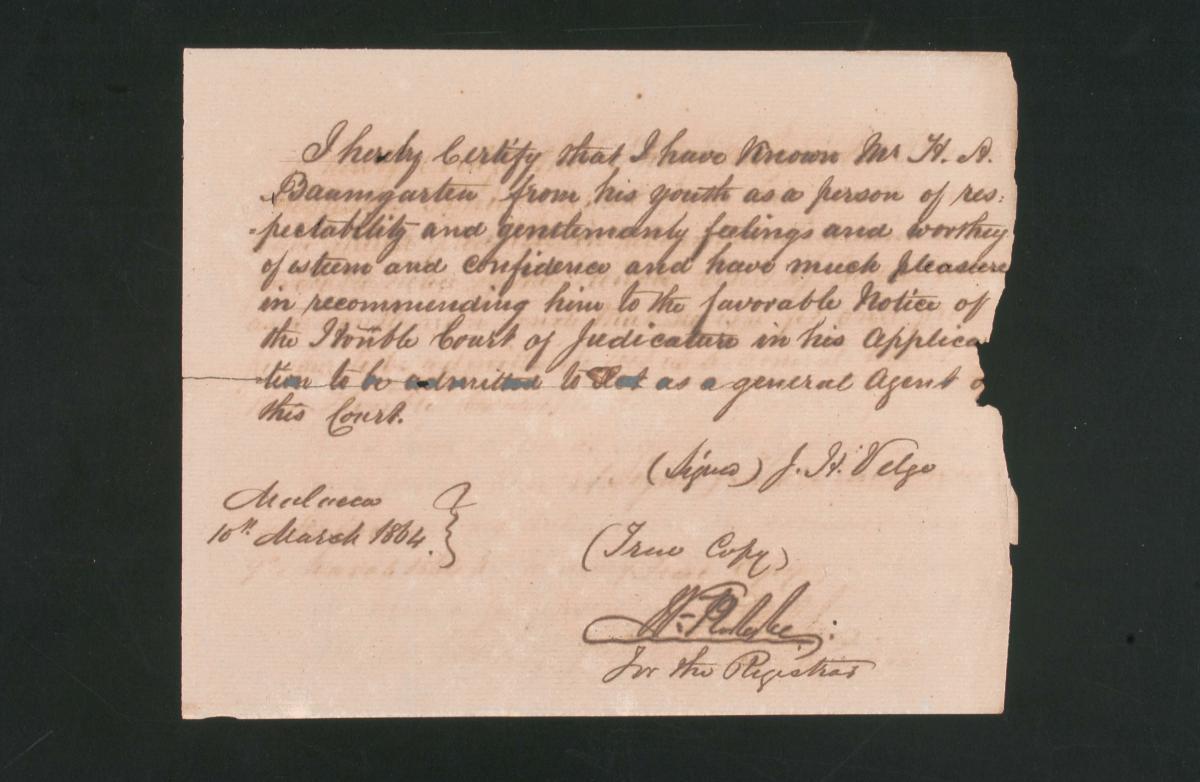 I hereby Certify that I have Known Mr H. A.
Baumgarten from his youth as a person of res:
=pectability and gentlemanly feelings and worthy
of esteem and confidence and have much pleasure
in recommending him to the favorable Notice of
the Honble Court of Judicature in his Applica
tion to be admitted to Act as a general Agent o
this Court.
(Signed) J. H. Velge
Malacca
10th March 1864.
(True Copy)
For the Registrar